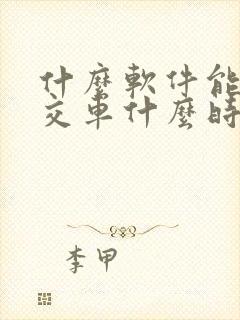 什麼軟件能
交車什麼時
李甲